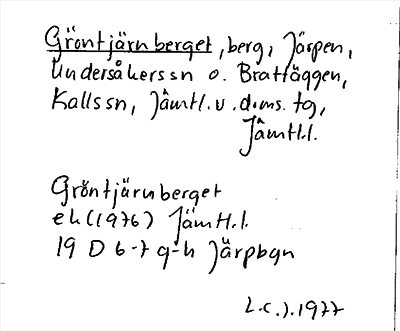 Gröntjärnberget, berg, Järpen,
Undersåkers sn o. Bratläggen,
Kalls sn, Jämtl. v. doms. tg,
Jämtl. l.
Gröntjärnberget
ek (1976) Jämtl. l.
19 D 6-7 g-h Järpbgn
L.C.J. 1977